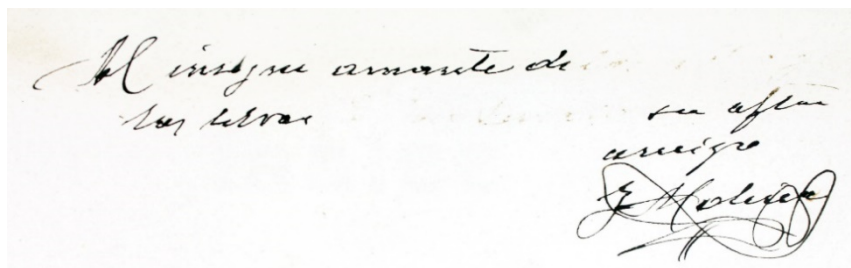 Al insigne amante de
las letras
su aftmo
amigo
J Molina